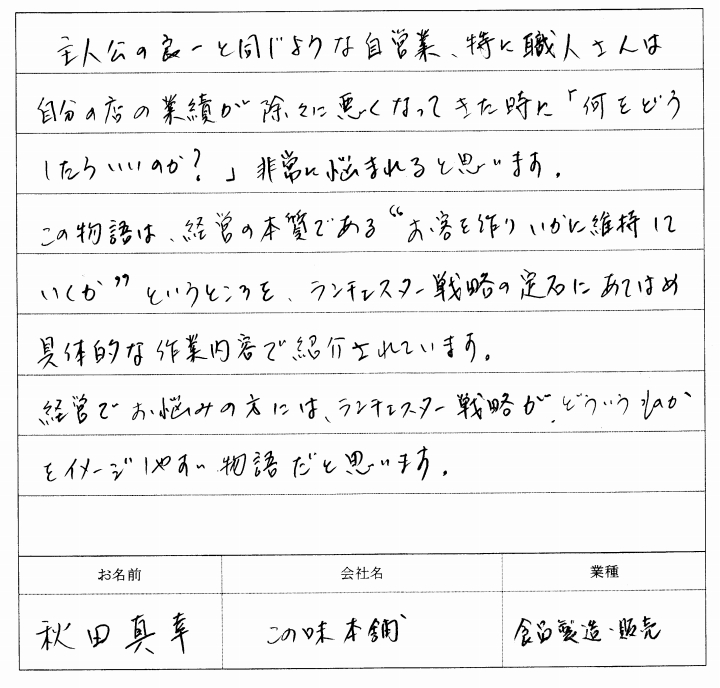 主人公の良一と同じような自営業、特に職人さんは
自分の店の業績が除々に悪くなってきた時に「何をどう
したらいいのか？」非常に悩まれると思います。
この物語は、経営の本質である“お客を作りいかに維持して
いくか”というところを、ランチェスター戦略の定石にあてはめ
具体的な作業内容で紹介されています。
経営でお悩みの方には、ランチェスター戦略が、どういうものか
をイメージしやすい物語だと思います。
お名前 会社名 業種
秋田真幸 この味本舗 食品製造・販売